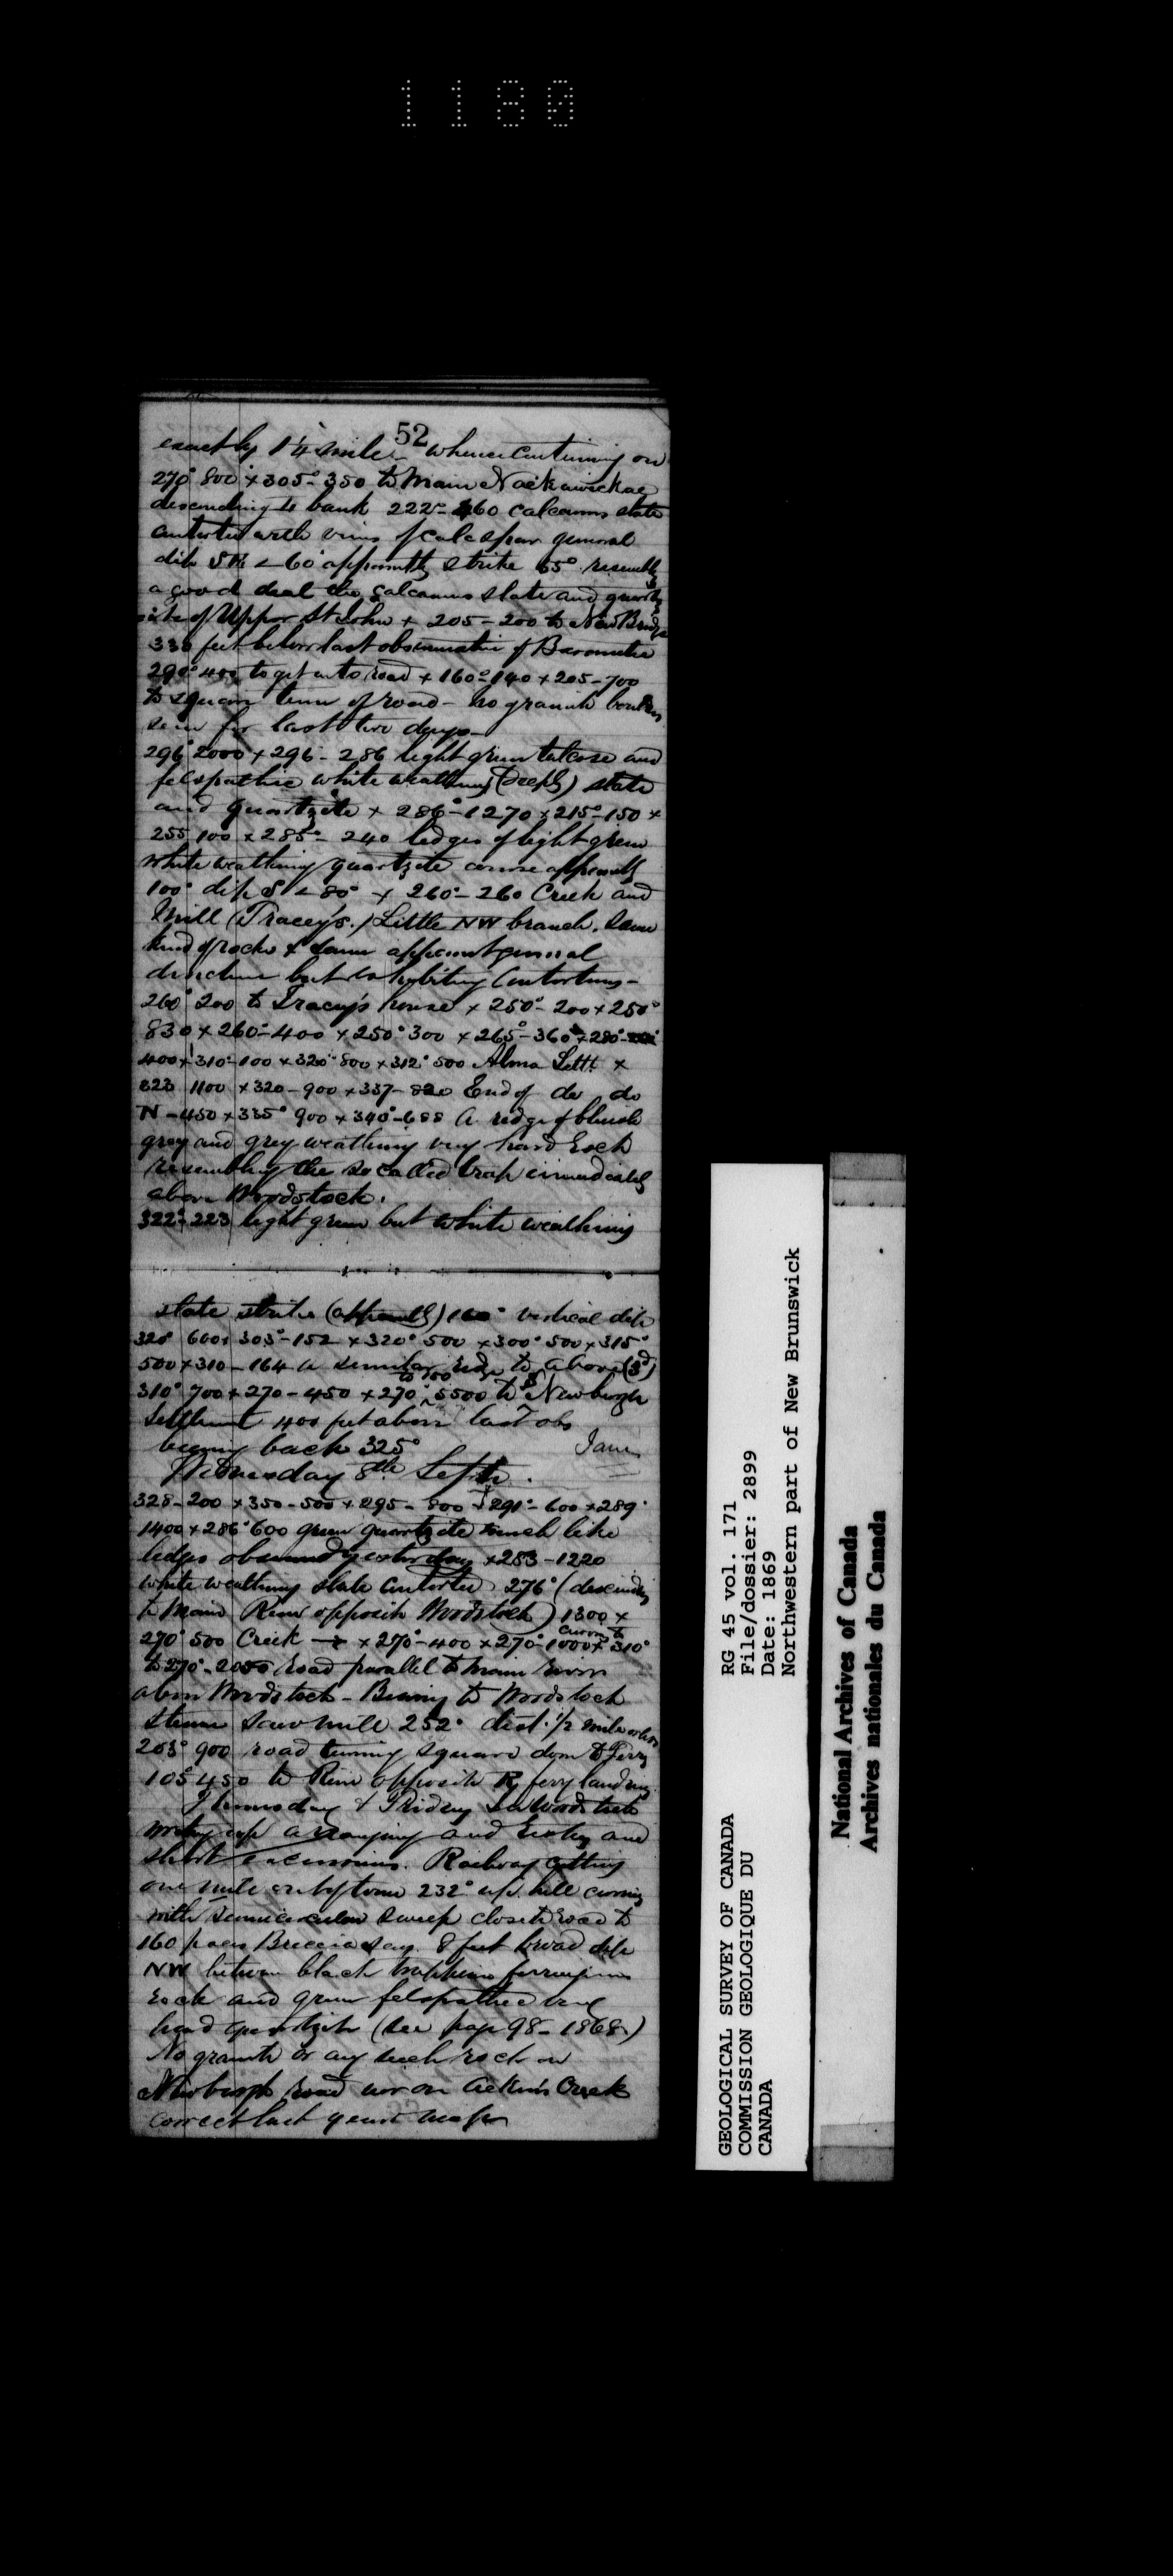 1180
52
exactly 1¼ mile - whence continuing on
270° 800 x 305° - 350 to Main Nackawickac
descending to bank 222° - 460 calcareous slate
contorted with veins of calcspar general
dip SE < 60° apparently strike 65° resembling
a good deal the calcareous slate and quartz
ite of Upper St John + 205 - 200 to New Bridge
330 feet below last observation of Barometer
290° 400 to get onto road + 160° 140 + 205 - 700
to square turn of road - No granite boulders
seen for last two days -
296° 2000 + 296 - 286 light green talcose and
felspathic white weathering (deeply) slate
and quartzite + 286° - 1270 x 215° - 150 x
255 100 x 285° - 240 ledges of light green
white weathering quartzite course apparently
100° dip S < 80° + 260° - 260 Creek and
Mill (Tracey's.) Little NW branch. Same
kind of rocks & same apparent general
direction but exhibiting contortions -
260° 200 to Tracey's house x 250° - 200 x 250°
830 x 260° - 400 x 250° 300 x 265° - 360 x 280°
400 x 310° - 100 x 320° 800 x 312° 500 Alma Settt x
323 1100 x 320 - 900 x 337 - 820 End of do do
N - 450 x 335° 900 x 340° - 688 a ridge of bluish
grey and grey weathering very hard rock
resembling the so called trap immediately
above Woodstock.
322° 223 light green but white weathering
slate strike (apparently) 160° vertical dip
320° 600 x 303° - 152 x 320° 500 x 300° 500 x 315°
500 x 310 - 164 a similar ridge to above (3d)
310° 700 x 270 - 450 x 270° 5500 to Newburgh
Settlement 400 feet above last obs
bearing back 325°
Wednesday 8th Septr.
328 - 200 x 350 - 500 x 295 - 800 x 291° - 600 x 289°
1400 x 286° 600 green quartzite much like
ledges observed yesterday x 283 - 1220
white weathering slate contorted 276° (descending
to Main River opposite Woodstock) 1300 x
curving to
270° 500 Creek x 270° - 400 x 270° - 1000 x 310°
to 270° - 2050 road parallel to main river
above Woodstock - Bearing to Woodstock
Steam Sawmill 252° dist. ½ mile
203° 900 road turning square down to Ferry
105° 450 to River opposite ferry landing.
Thursday & Friday in Woodstock
writing up arranging and and
short excursions. Railway cutting
one mile out of town 232° up hill curving
with semicircular sweep close to road to
160 paces Breccia say 8 feet broad dip
NW between black trappean ferruginous
rock and green felspathic very
hard quartzite (see page 98 - 1868)
No granite or any such rock on
Newburgh road nor on Acker's Creek
correct last years map
GEOLOGICAL SURVEY OF CANADA
COMMISSION GEOLOGIQUE DU
CANADA
RG 45 vol. 171
File/dossier: 2899
Date: 1869
Northwestern part of New Brunswick
National Archives of Canada
Archives nationales du Canada